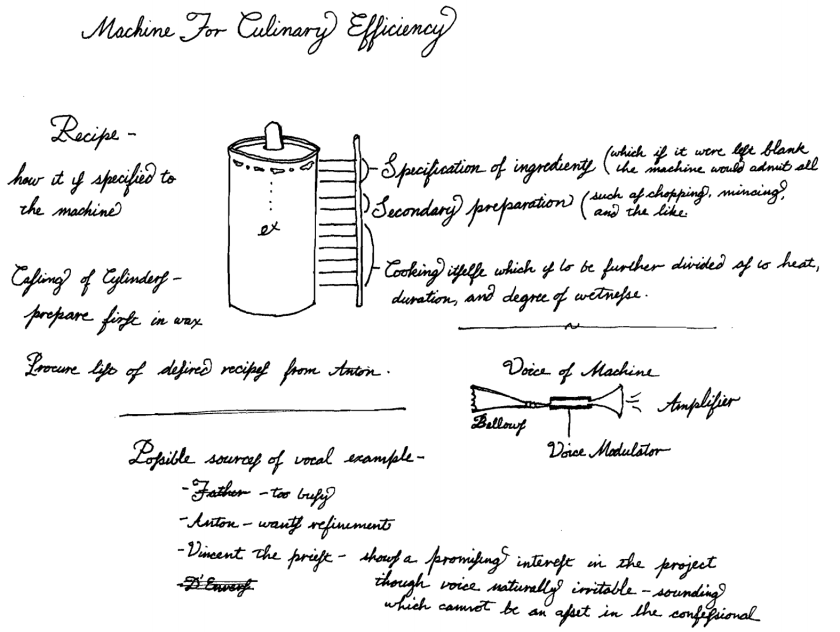 Machine For Culinary Efficiency
Recipe -
how it is specified to
the machine
ex
- Specification of ingredients (which if it were left blank
the machine would admit all
Secondary preparation (such as chopping, mincing,
and the like.
- Cooking itselfe which is to be further divided as to heat,
duration, and degree of wetnesse.
Casting of Cylinders -
prepare first in wax
Procure list of desired recipes from Anton.
Voice of Machine
Bellows
Amplifier
Voice Modulator
Possible sources of vocal example -
- Father - too busy
- Anton - wants refinement
- Vincent the priest - shows a promising interest in the project
though voice naturally irritable - sounding
which cannot be an asset in the confessional
- D'Envers